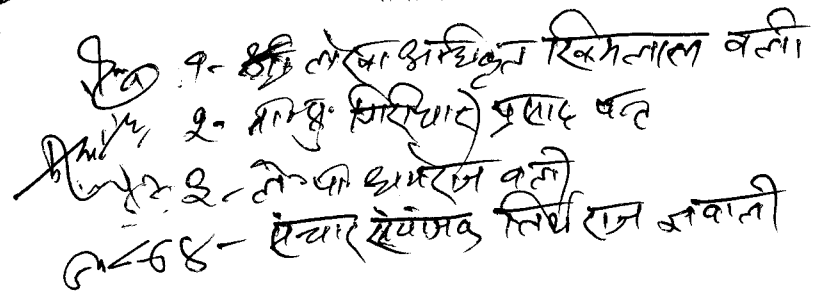 १- लेखा अधिकृत खिमलाल वली
२- ना.सु. गिरीधारी प्रसाद पन्त
३- ले.पा धर्मराज वली
४- संचार संयोजक तिर्थ राज ज्ञवाली